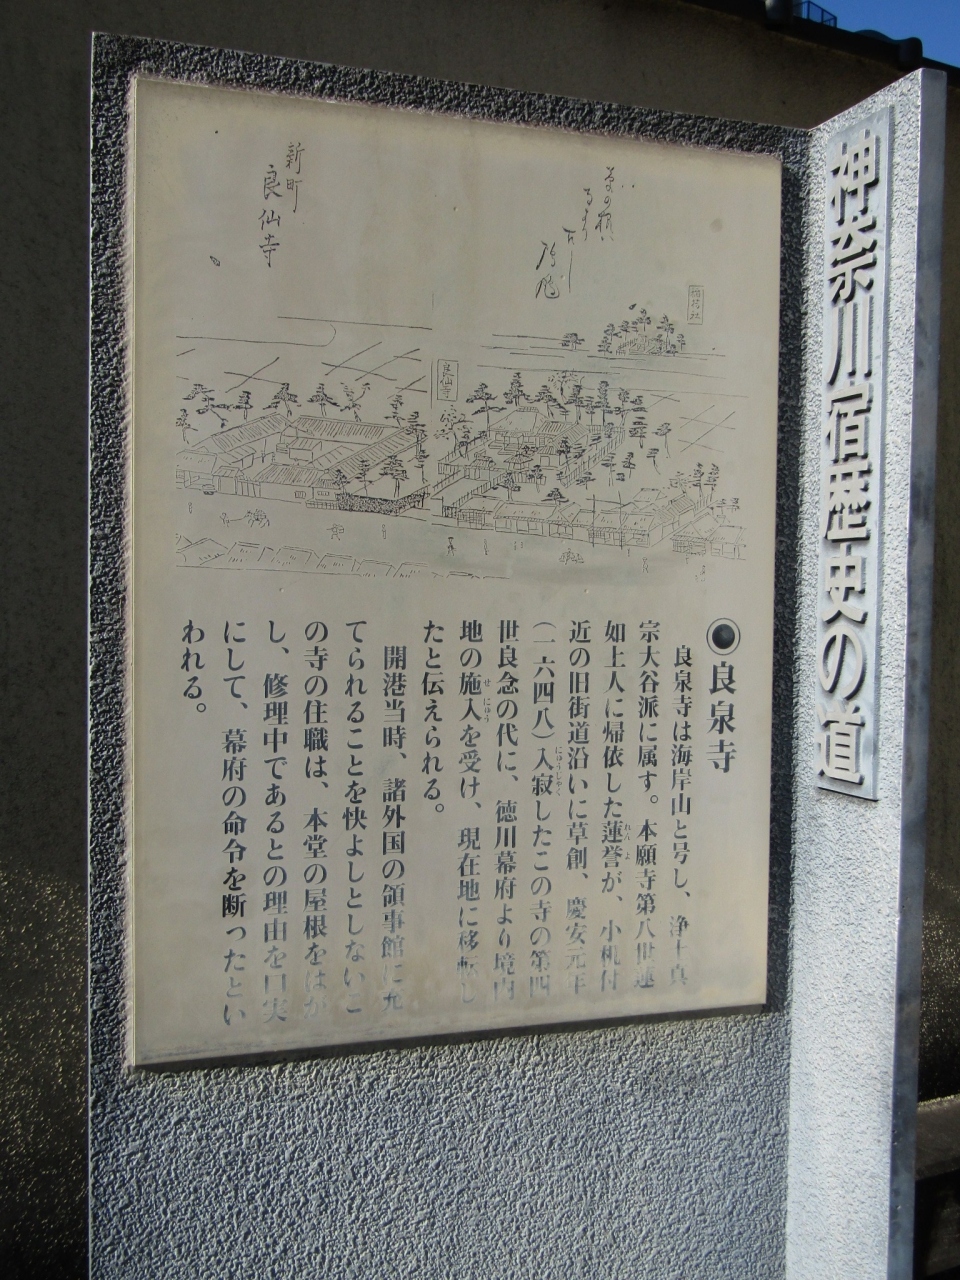 神奈川宿歴史の道
新町
良仙寺
良仙寺
良泉寺
良泉寺は海岸山と号し、浄土真
宗大谷派に属す。本願寺第八世蓮
如上人に帰依した蓮誉が、小机付
れんよ
近の旧街道沿いに草創、慶安元年
(一六四八)入寂したこの寺の第四
にゅうじゃく
世良念の代に、徳川幕府より境内
地の施入を受け、現在地に移転し
せにゅう
たと伝えられる。
開港当時、諸外国の領事館に充
てられることを快よしとしないこ
の寺の住職は、本堂の屋根をはが
し、修理中であるとの理由を口実
にして、幕府の命令を断ったとい
われる。